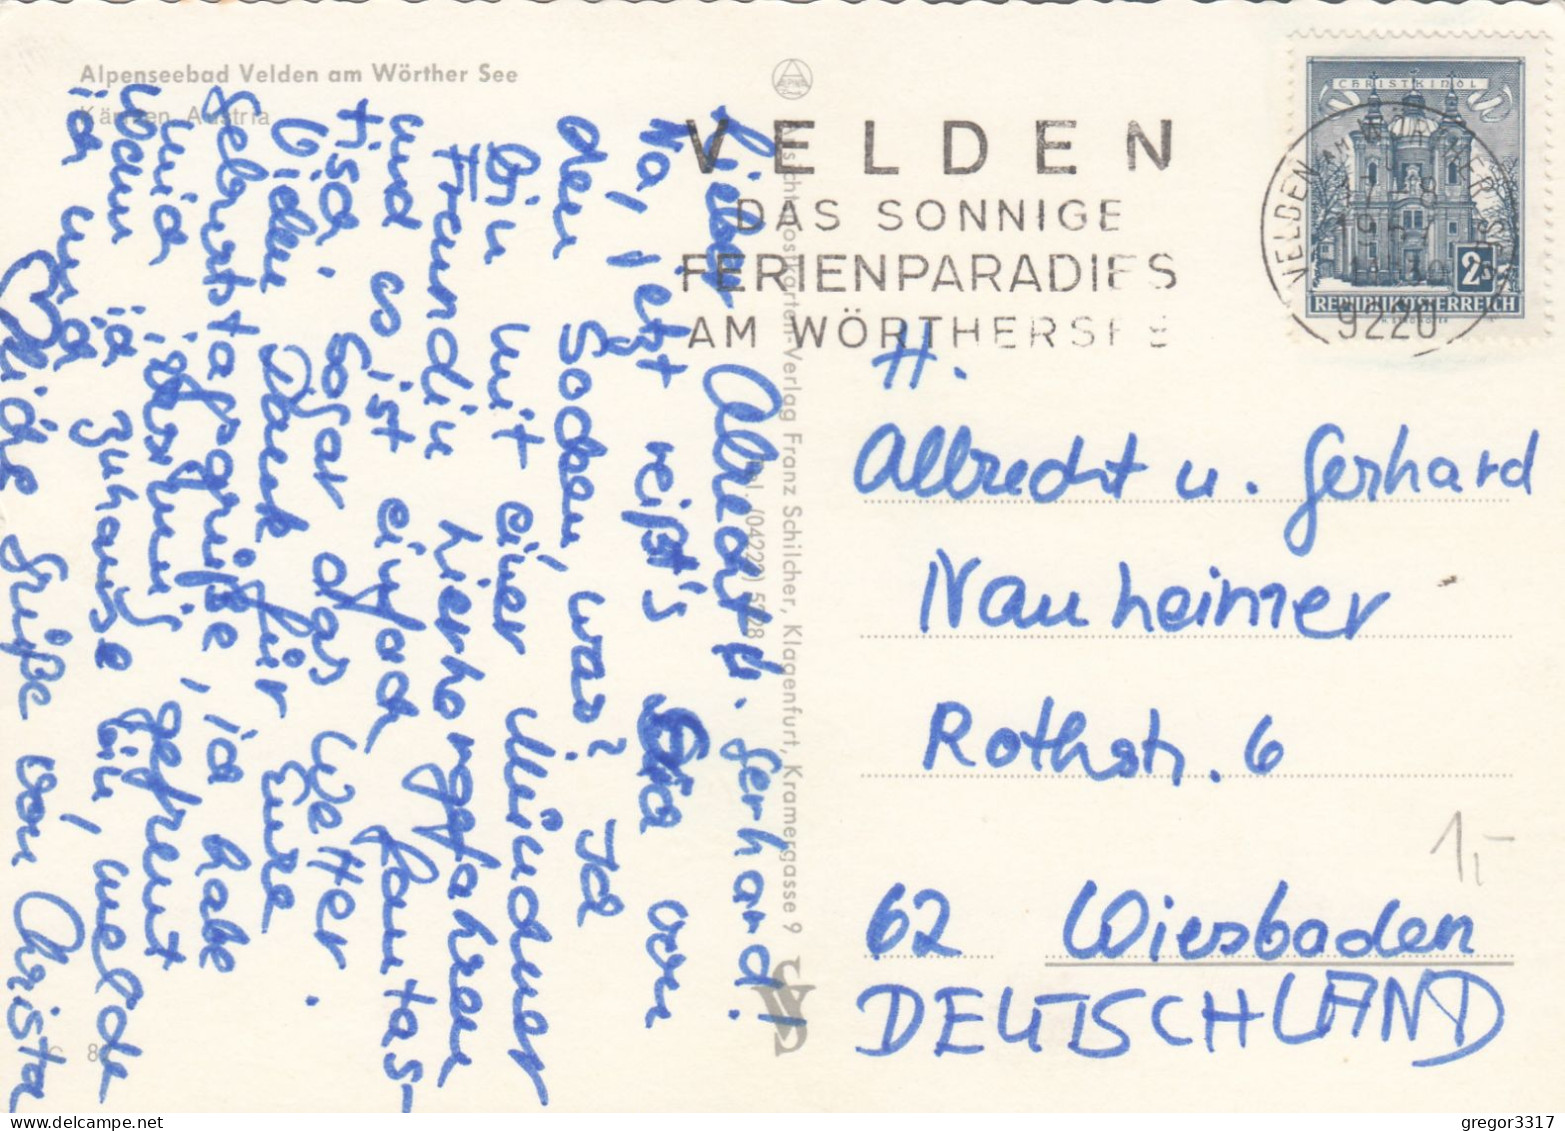 Alpenseebad Velden am Wörther See
Kärnten, Austria
VELDEN
DAS SONNIGE
FERIENPARADIES
AM WÖRTHERSEE
CHRISTKINDL
2S
REPUBLIK ÖSTERREICH
VELDEN AM WÖRTHER SEE
9220
Lieber Albrecht u. Gerhard!
Na, jetzt reißt's Euch von
den Socken, was? Ich
bin mit einer Münchner
Freundin hierhergefahren
und es ist einfach fantas-
tisch. Sogar das Wetter.
Vielen Dank für Eure
Geburtstagsgrüße, ich habe
mich sehr gefreut
Wenn ich zuhause bin, melde
ich mich
Liebe Grüße von Christa
Ansichtspostkarten-Verlag Franz Schilcher, Klagenfurt, Kramergasse 9
Tel. (04222) 5728
H.
Albrecht u. Gerhard
Nauheimer
Rothstr. 6
62 Wiesbaden
DEUTSCHLAND
1,-
gregor3317